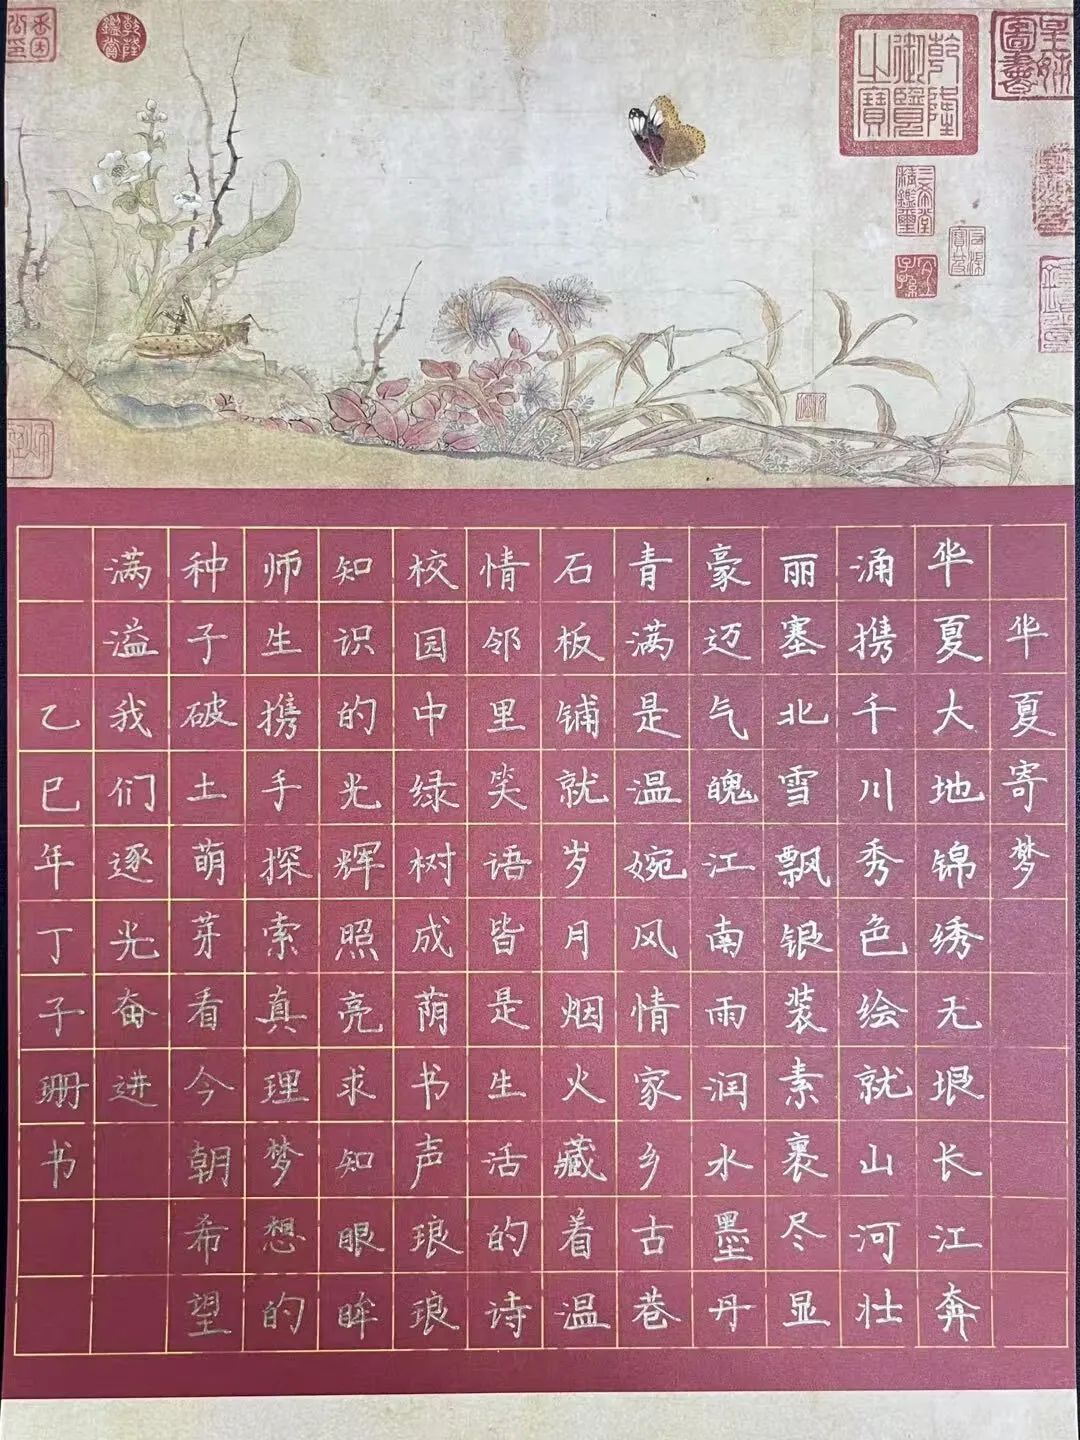 华夏寄梦
华夏大地锦绣无垠长江奔
涌携千川秀色绘就山河壮
丽塞北雪飘银装素裹尽显
豪迈气魄江南雨润水墨丹
青满是温婉风情家乡古巷
石板铺就岁月烟火藏着温
情邻里笑语皆是生活的诗
校园中绿树成荫书声琅琅
知识的光辉照亮求知眼眸
师生携手探索真理梦想的
种子破土萌芽看今朝希望
满溢我们逐光奋进
乙巳年丁子珊书
乾隆御览之宝
三希堂精鉴玺
宜子孙
乾隆鉴赏